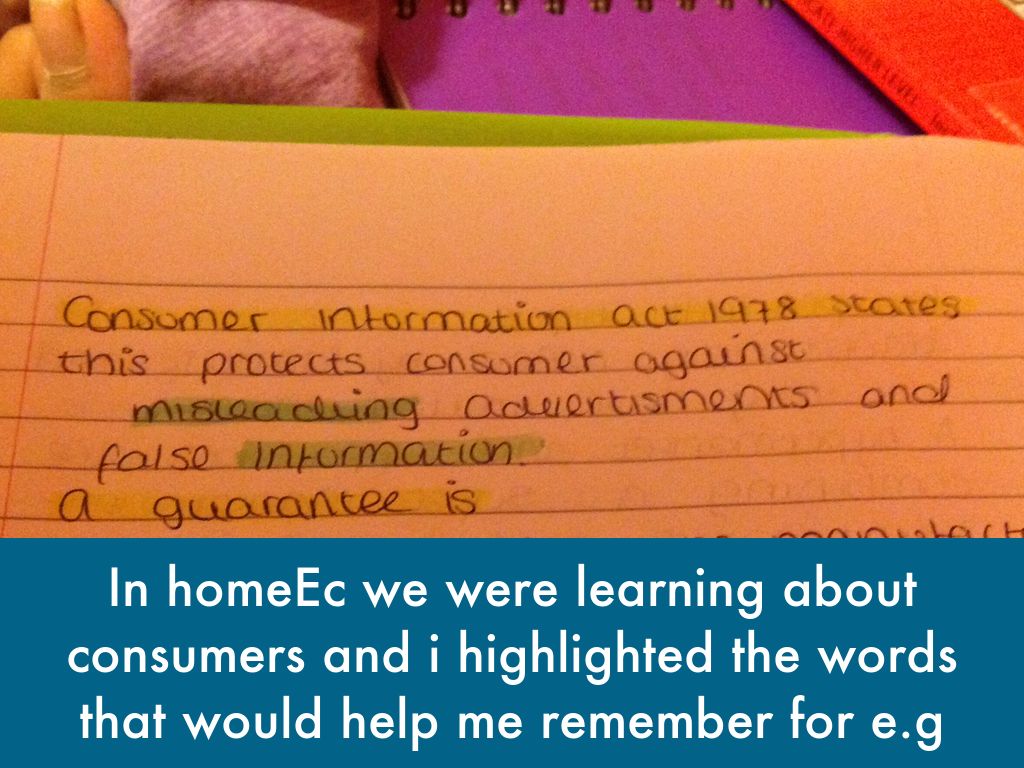 HIGHER LEVEL
Consumer information act 1978 states
this protects consumer against
misleading advertisments and
false information.
A guarantee is
In homeEc we were learning about
consumers and i highlighted the words
that would help me remember for e.g